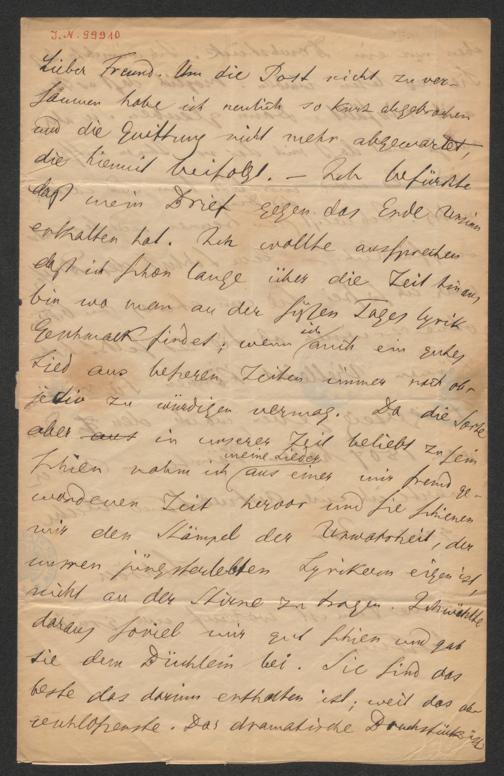 J.N. 99910
Lieber Freund. Um die Post nicht zu ver-
säumen habe ich neulich so kurz abgebrochen
und die Quittung nicht mehr abgewartet,
die hiemit beifolgt. — Ich befürchte
daß mein Brief gegen das Ende Unsinn
enthalten hat. Ich wollte aussprechen
daß ich schon lange über die Zeit hinaus
bin wo man an der süßen Tages Lyrik
Geschmack findet; wenn ich auch ein gutes
Lied aus besseren Zeiten immer noch ob-
jectiv zu würdigen vermag. Da die Sorte
aber aus in unserer Zeit beliebt zu sein
schien nahm ich meine Lieder aus einer mir fremd ge-
wordenen Zeit hervor und sie schienen
mir den Stämpel der Unwarheit, der
unsren jüngsterlebten Lyrikern eigen ist,
nicht an der Stirne zu tragen. Ich wählte
daraus soviel mir gut schien und gab
sie dem Büchlein bei. Sie sind das
beste das darinn enthalten ist; weil das ab-
geschlossenste. Das dramatische Bruchstück ist